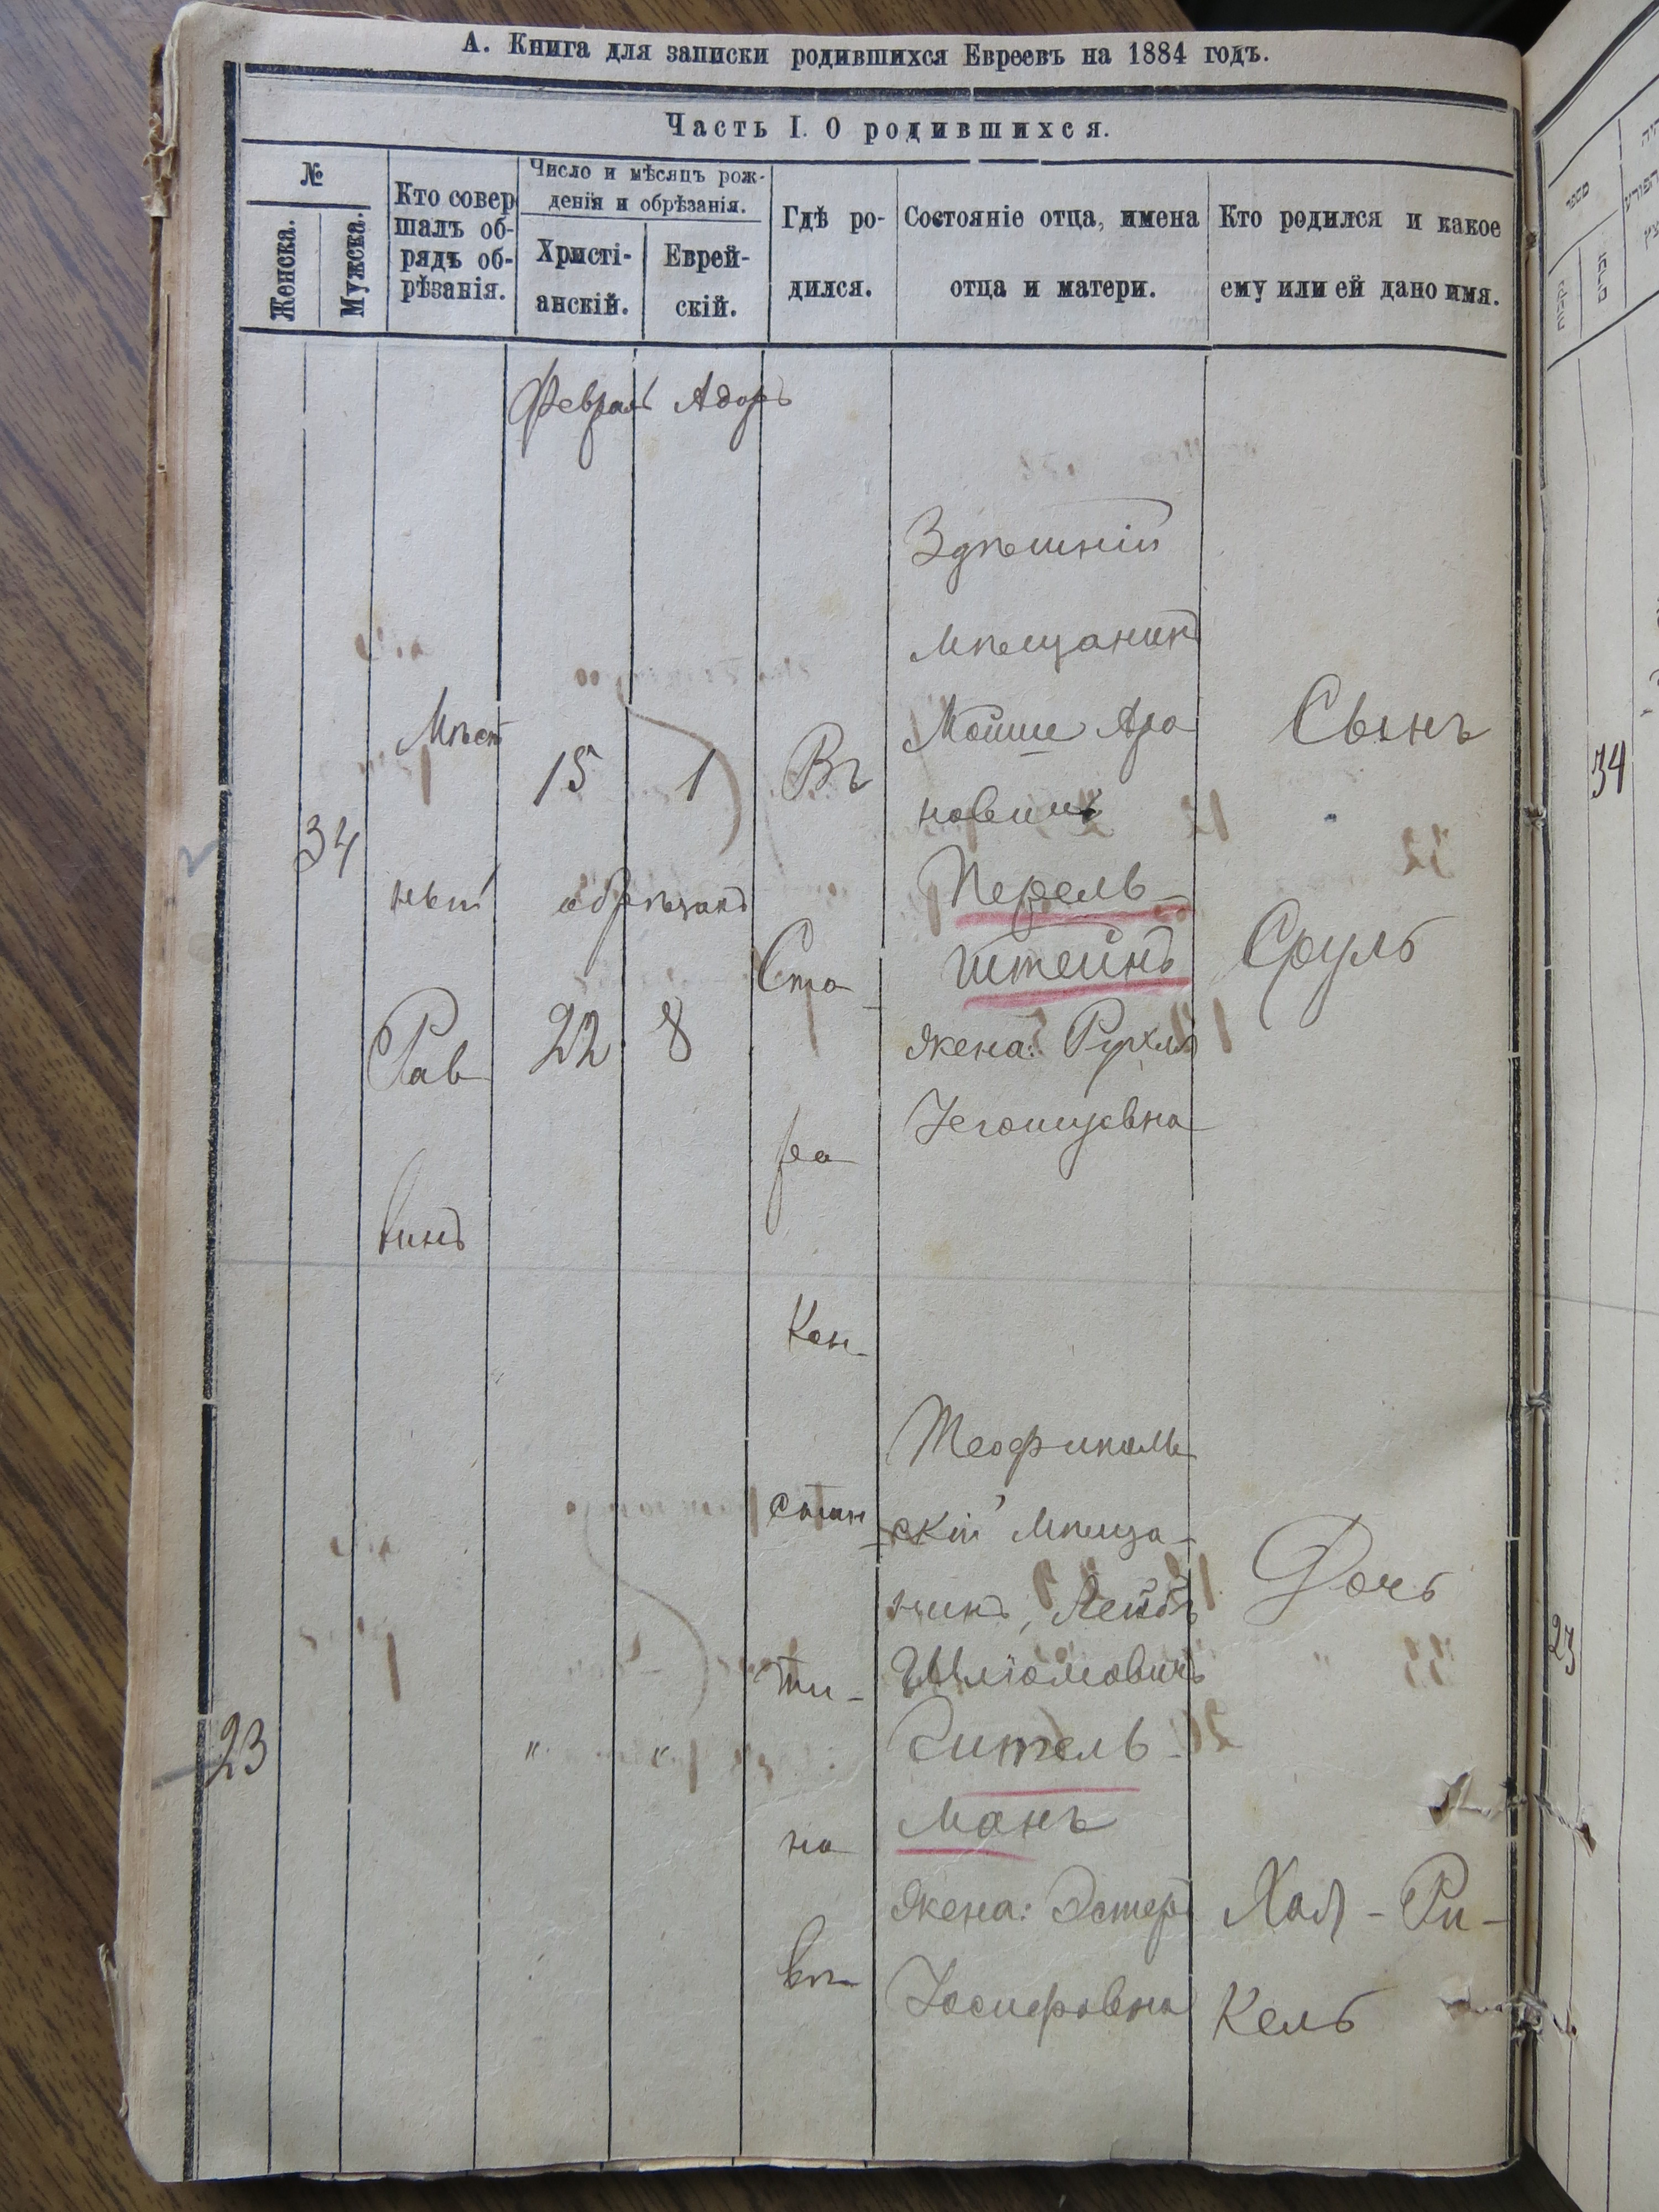 А. Книга для записки родившихся Евреевъ на 1884 годъ.
Часть I. О родившихся.
№
Женска.
Мужска.
Кто совер
шалъ об-
рядъ об-
рѣзанія.
Число и мѣсяцъ рож-
денія и обрѣзанія.
Христі-
анскій.
Еврей-
скій.
Гдѣ ро-
дился.
Состояніе отца, имена
отца и матери.
Кто родился и какое
ему или ей дано имя.
Февраль Адоръ
34
Мѣст
ный
Рав
винъ
15 1
обрѣзанъ
22 8
Въ
Ста
ра
Кон-
стан
ти-
но
вѣ
Здѣшній
мѣщанинъ
Мойше Аро
новичъ
Перель-
штейнъ
жена: Рухля
Іегошуовна
Сынъ
Сруль
23
" "
Теофиполь
скій мѣща-
нинъ, Лейбъ
Шліомовичъ
Сительь
манъ
жена: Эстеръ
Іосифовна
Дочь
Хая - Ри-
Кель
34
23